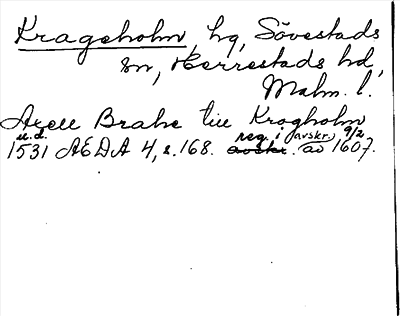 Krageholm, hg, Sövestads
sn, Herrestads hd,
Malm. l.
Axell Brahe till Krogholm
u.d. reg. i (avskr.) 9/2
1531 AEDA 4, s. 168. avskr. av 1607.